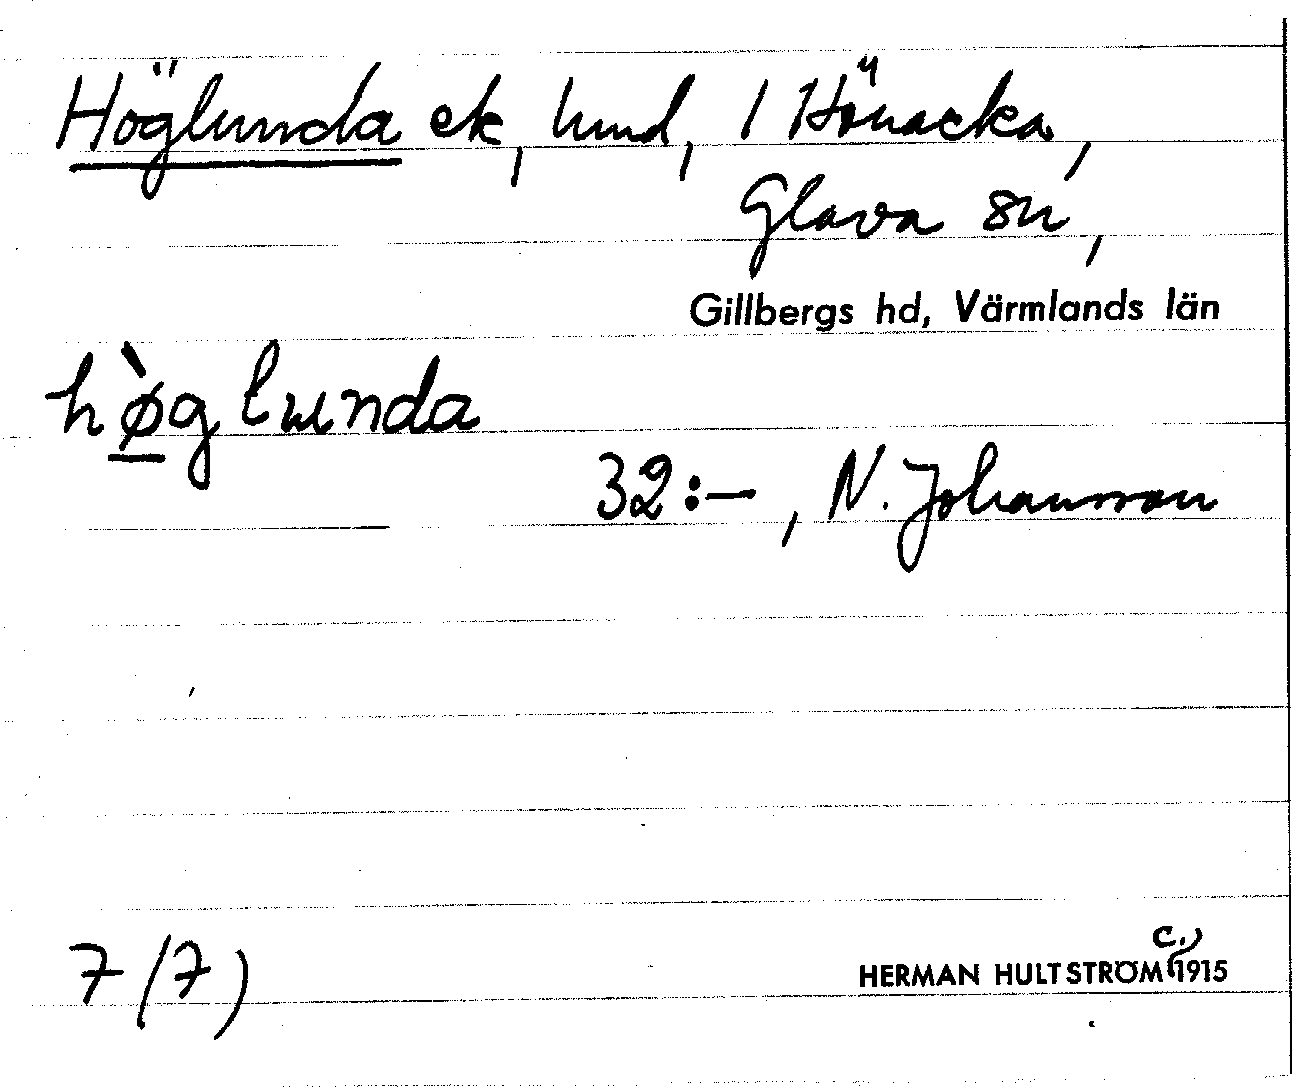 Höglunda ek, lund, 1 Hönacka,
Glava sn,
Gillbergs hd, Värmlands län
hø̀glunda
32:–, N. Johansson
7/7)
HERMAN HULTSTRÖM c., 1915